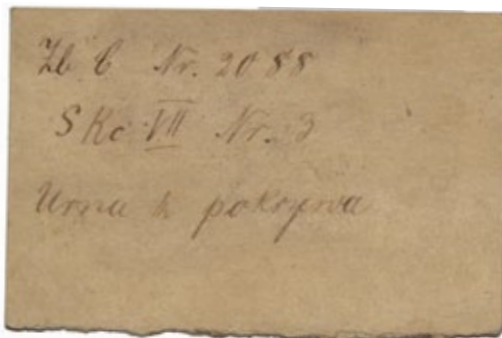 Zb C Nr. 2088
S Kc VII Nr. 3
Urna k pokrywa